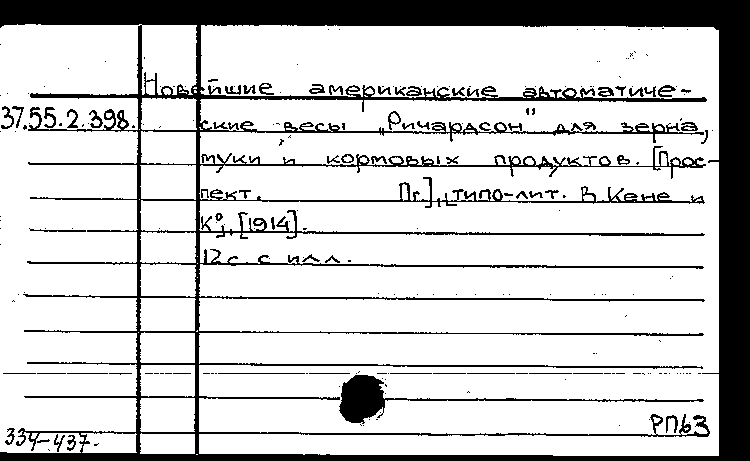 Новейшие американские автоматиче-
37.55.2.398. ские весы „Ричардсон" для зерна,
муки и кормовых продуктов. [Прос-
пект. Пг.], [типо-лит. В. Кене и
К°], [1914].
12 с. с илл.
РПБЗ
334-437.